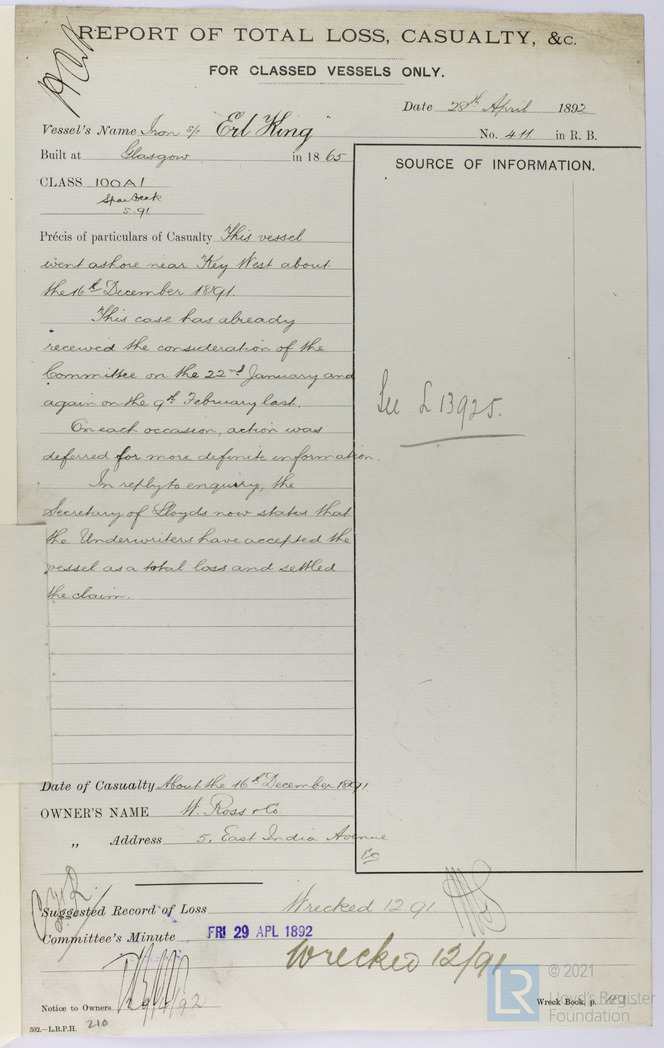 REPORT OF TOTAL LOSS, CASUALTY, &c.
FOR CLASSED VESSELS ONLY.
Date 28th April 1892
Vessel's Name Iron s/s "Erl King"
No. 411 in R. B.
Built at Glasgow in 1865
CLASS 100A1
Spar Deck
5.91
SOURCE OF INFORMATION.
See L 13925.
Précis of particulars of Casualty This vessel
went ashore near Key West about
the 16th December 1891.
This case has already
received the consideration of the
Committee on the 22nd January and
again on the 9th February last.
On each occasion, action was
deferred for more definite information.
In reply to enquiry, the
Secretary of Lloyds now states that
the Underwriters have accepted the
vessel as a total loss and settled
the claim.
Date of Casualty About the 16th December 1891
OWNER'S NAME W. Ross & Co.
„ Address 5, East India Avenue
EC
Suggested Record of Loss Wrecked 12.91
Committee's Minute FRI 29 APL 1892
Wrecked 12/91
Notice to Owners 29/4/92
Wreck Book, p.
302.—L.R.P.H. 210
LR © 2021
Lloyd's Register
Foundation